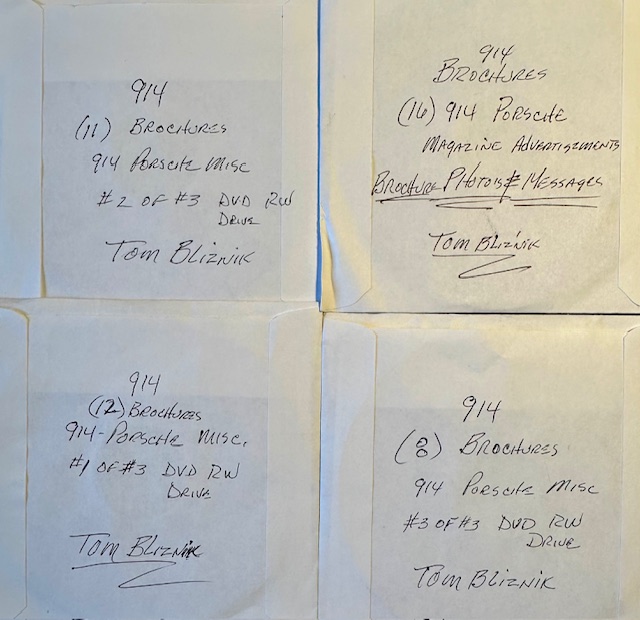 914
(11) BROCHURES
914 PORSCHE MISC
#2 OF #3 DVD RW
DRIVE
TOM BLIZNIK
914
BROCHURES
(16) 914 PORSCHE
MAGAZINE ADVERTISZMENTS
BROCHURE PHOTOS & MESSAGES
TOM BLIZNIK
914
(12) BROCHURES
914-PORSCHE MISC.
#1 OF #3 DVD RW
DRIVE
TOM BLIZNIK
914
(8) BROCHURES
914 PORSCHE MISC
#3 OF #3 DVD RW
DRIVE
TOM BLIZNIK